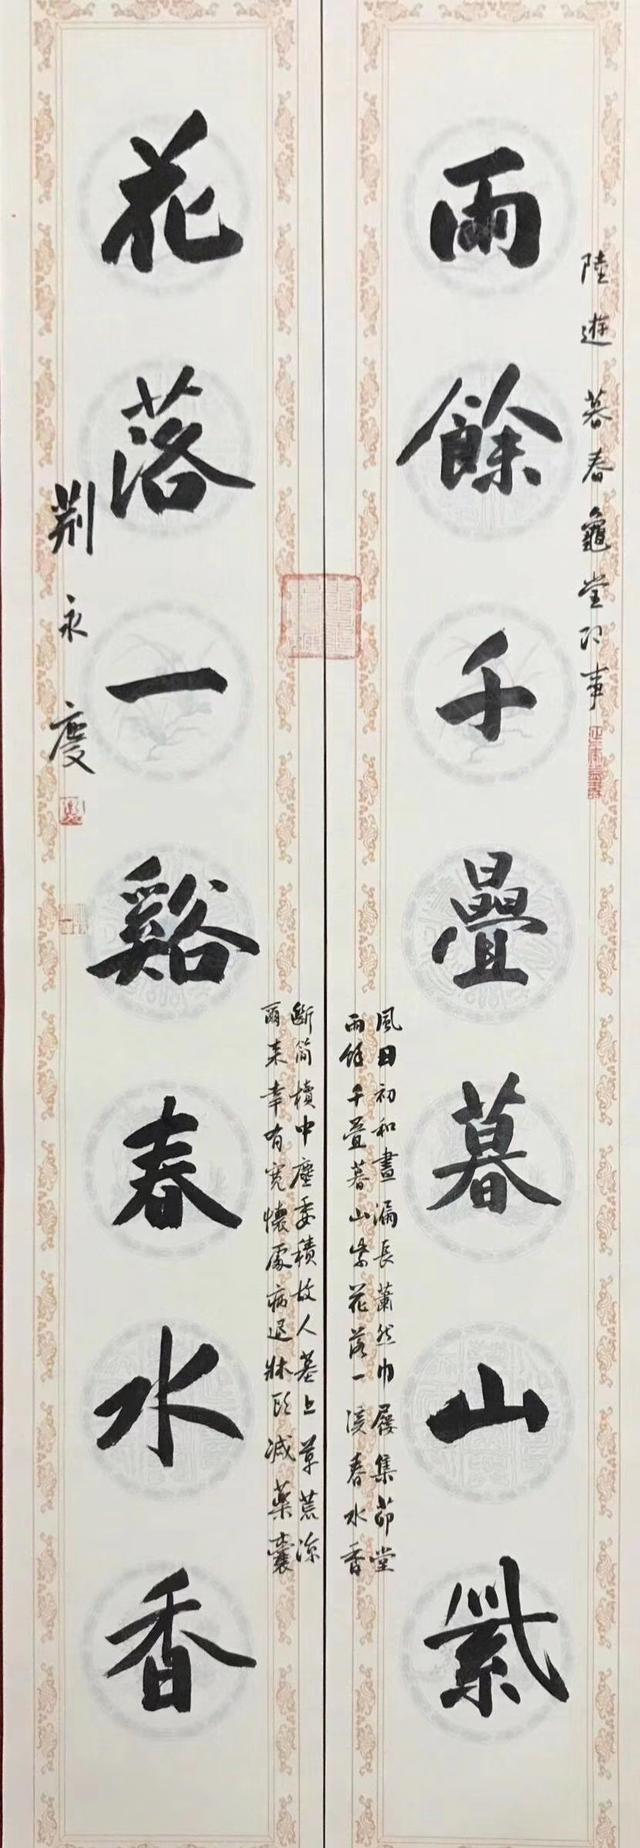 陸遊 暮春龜堂即事
雨餘千疊暮山紫
風日初和晝漏長蕭然巾屨集茆堂
雨餘千疊暮山紫花落一溪春水香
斷簡櫝中塵委積故人墓上草荒涼
爾來幸有寬懷處病退牀頭減藥囊
花落一谿春水香
荊永慶